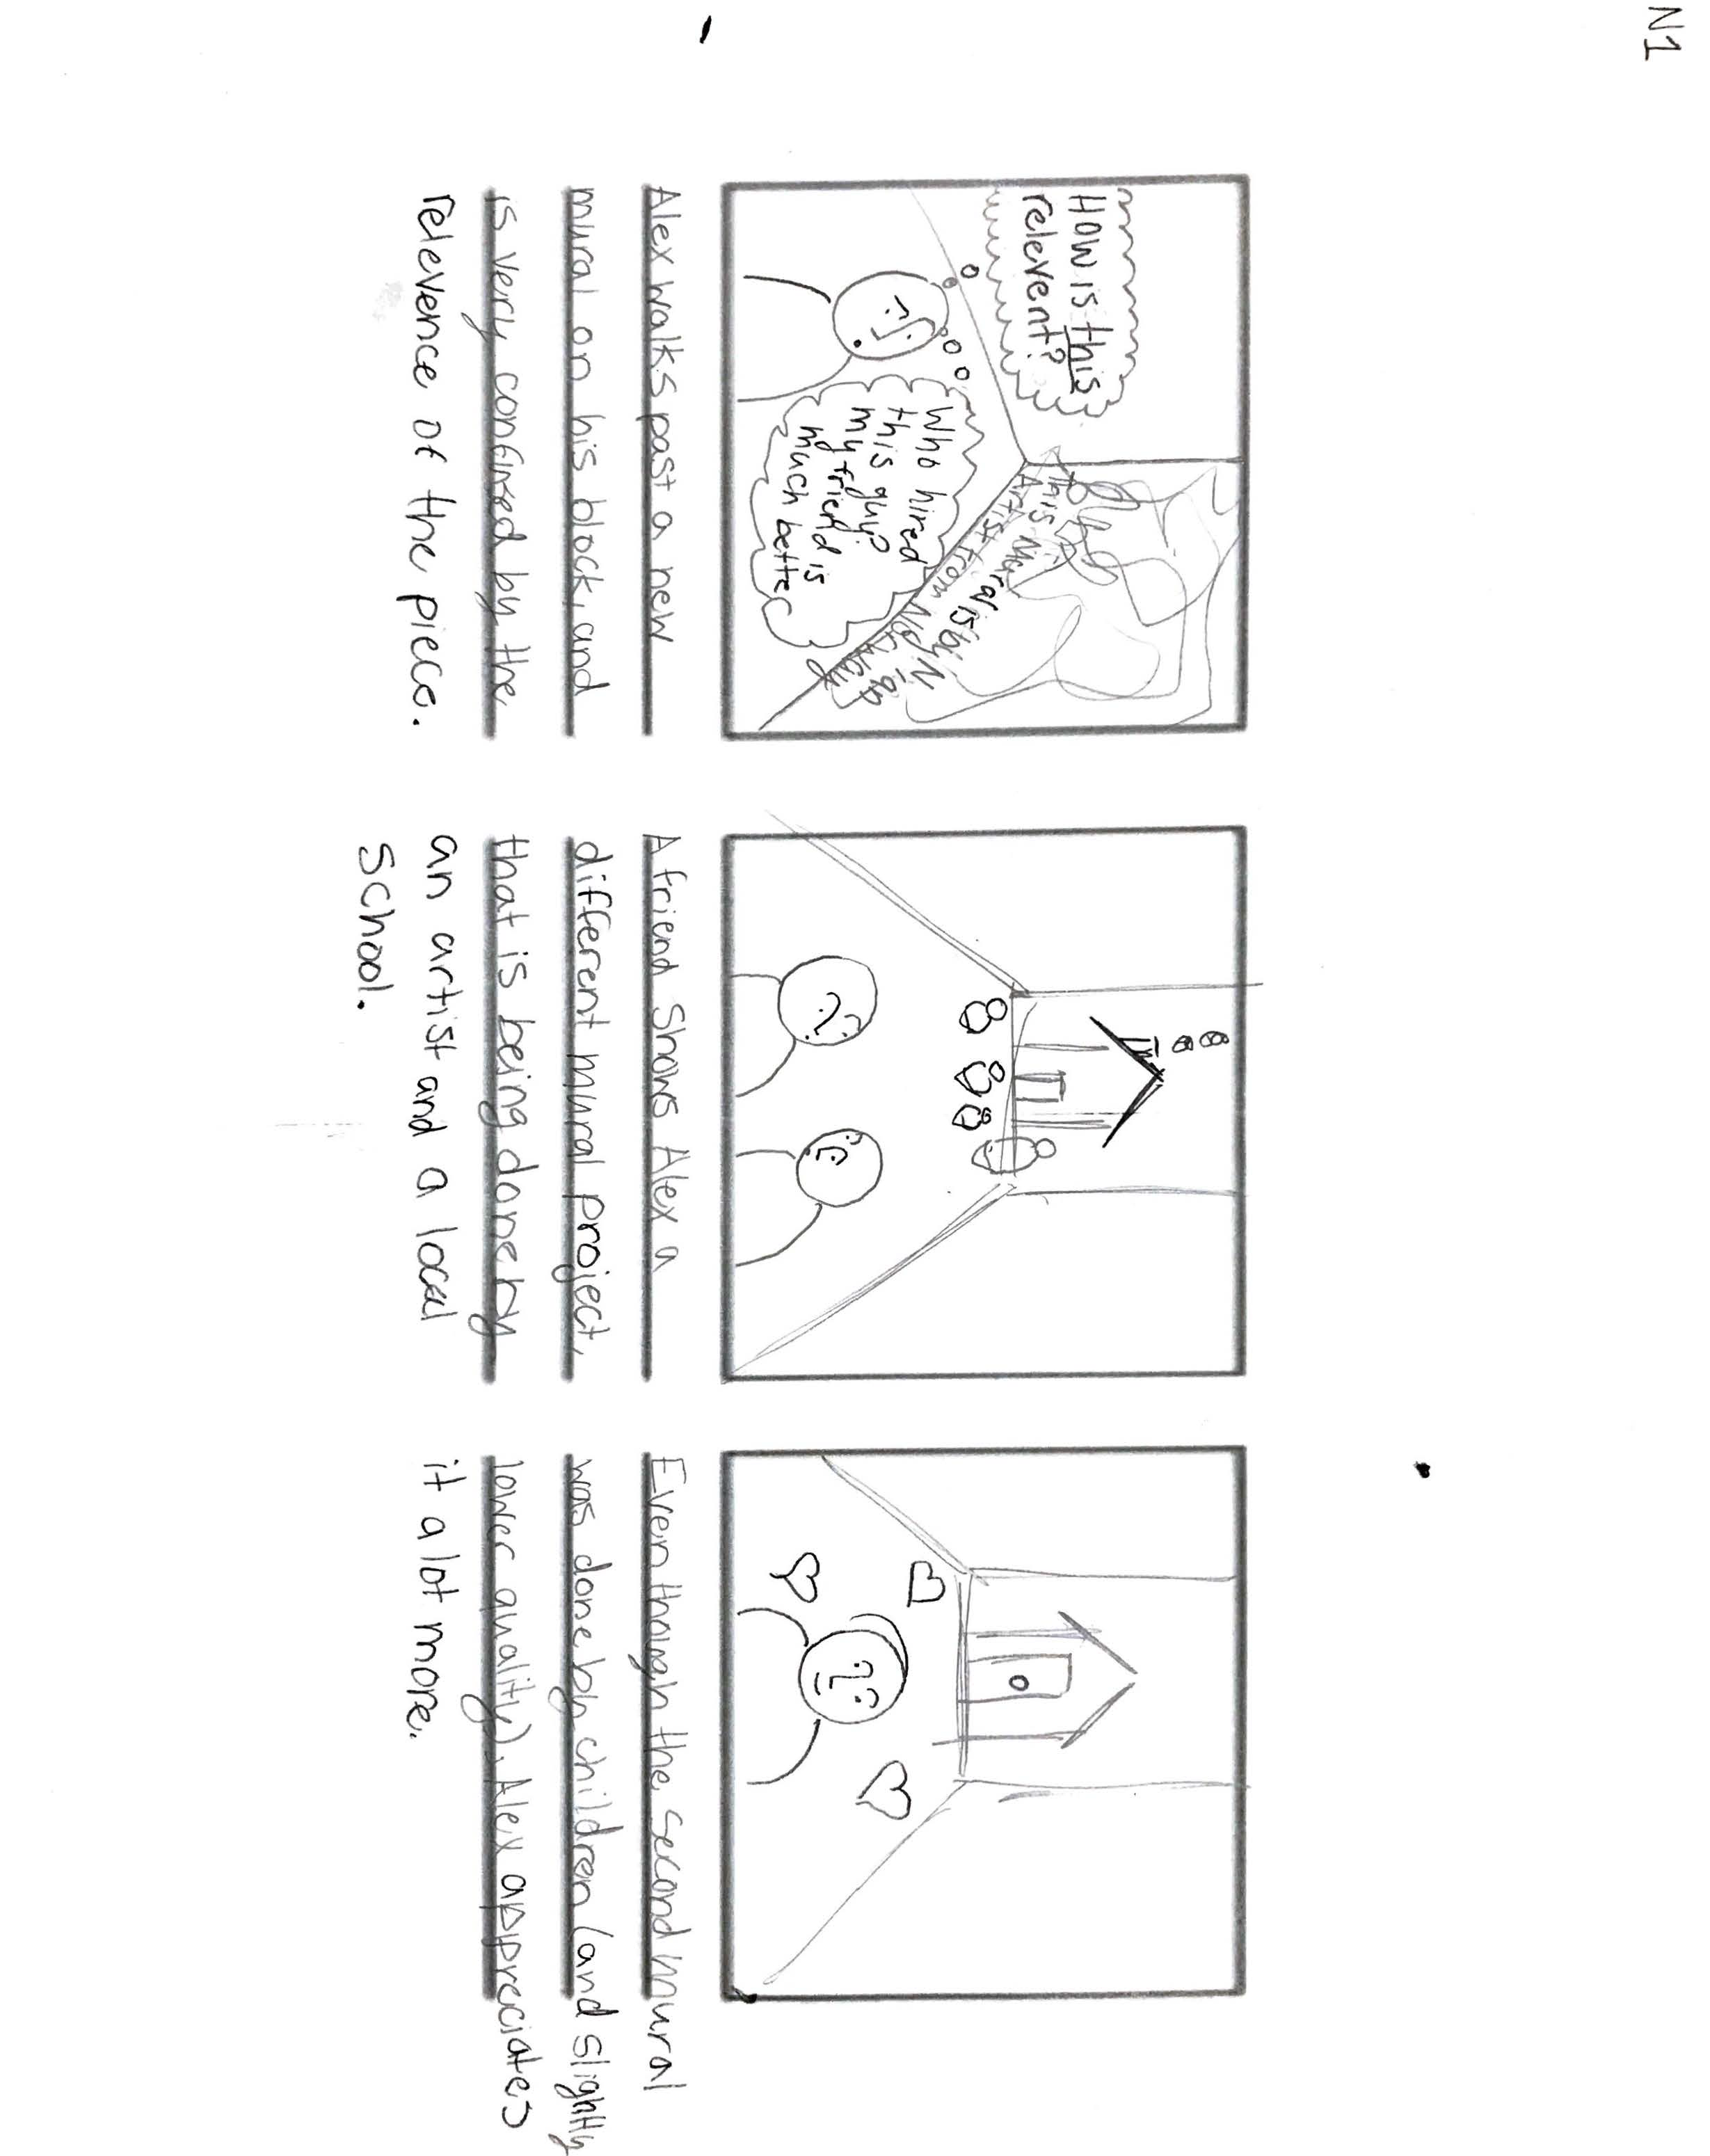 N1
How is this
relevent?
Who hired
this guy?
my friend is
much better
This Mural is by
Artist from
Alex walks past a new
mural on his block, and
is very confused by the
relevence of the piece.
A friend Shows Alex a
different mural project,
that is being done by
an artist and a local
school.
Even though the second mural
was done by children (and slightly
lower quality), Alex appreciates
it a lot more.